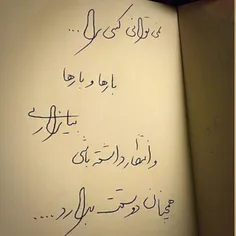 نمی توانی کسی را ...
بارها و بارها
بیازاری
و انتظار داشته باشی
همچنان دوستت بدارد ....